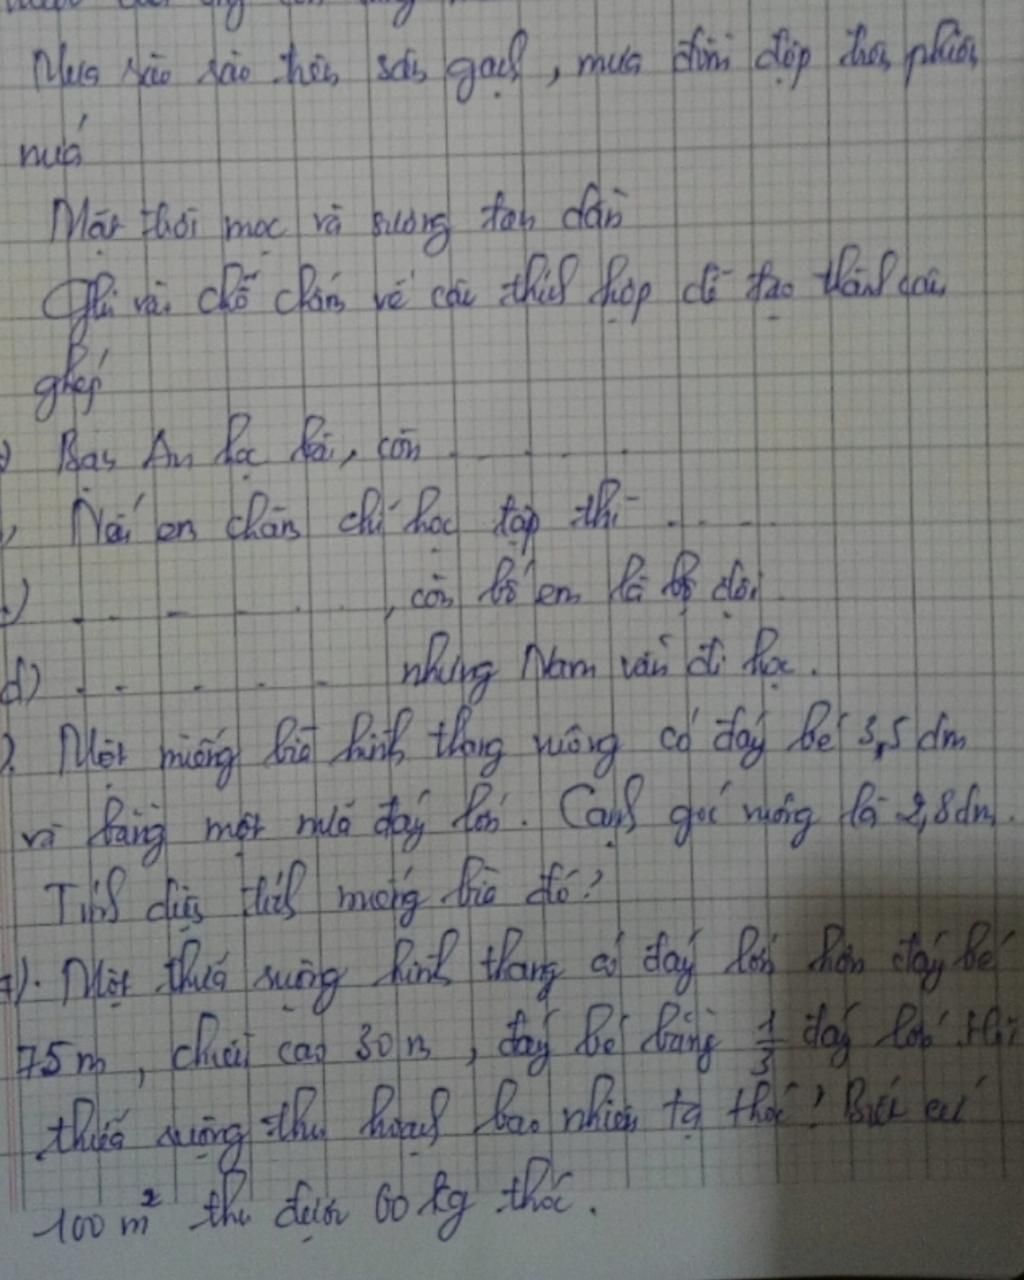 Mưa rào rào trên sân gạch, mưa đồm độp trên phên
nứa
Mặt trời mọc và sương tan dần
Ghi vào chỗ chấm vế câu thích hợp để tạo thành câu
ghép
Bạn An học bài, còn . . . .
Nếu em chăm chỉ học tập thì . . . .
. . . . . , còn bố em là bộ đội
d) . . . . . nhưng Nam vẫn đi học.
Một miếng bìa hình thang vuông có đáy bé 3,5 dm
và bằng một nửa đáy lớn. Cạnh góc vuông là 2,8dm.
Tính diện tích miếng bìa đó?
Một thửa ruộng hình thang có đáy lớn hơn đáy bé
75 m, chiều cao 30 m, đáy bé bằng 1/3 đáy lớn. Hỏi
thửa ruộng thu hoạch bao nhiêu tạ thóc? Biết cứ
100 m² thu được 60 kg thóc.